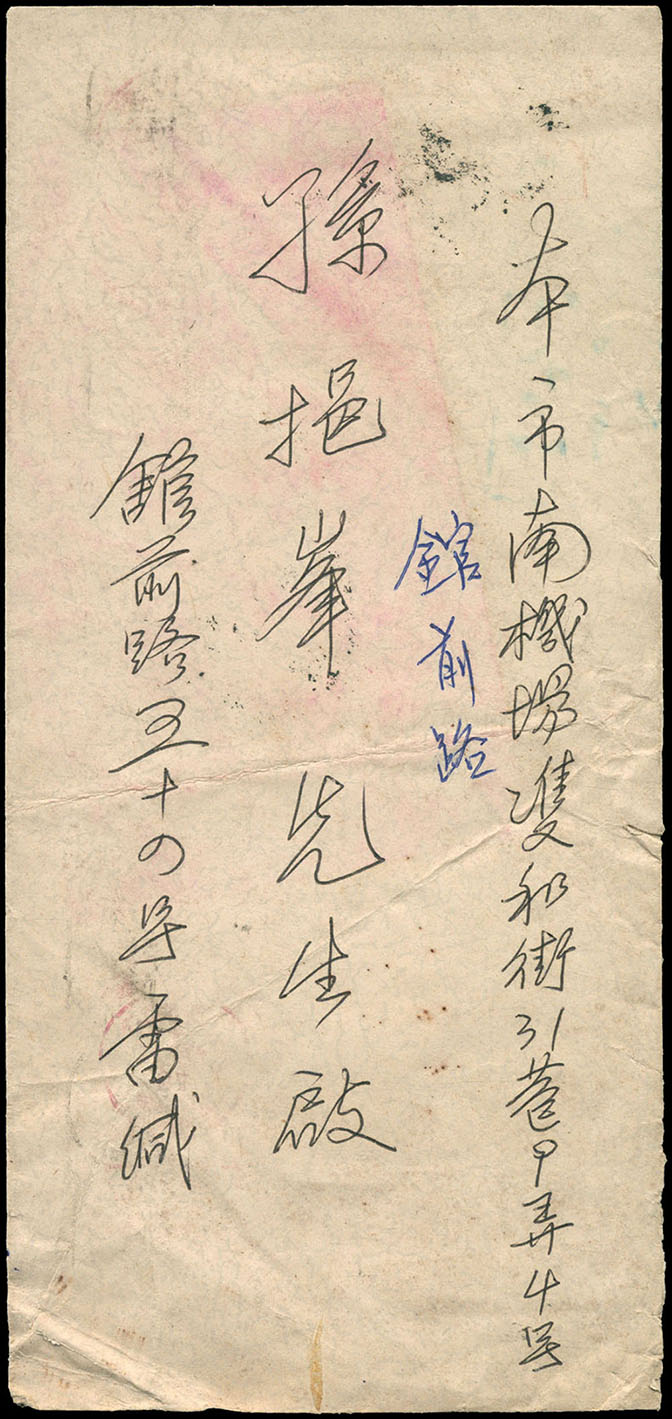 本市南機場雙和街31巷甲弄4号
館前路
孫挹峯先生啟
館前路五十四号雷緘